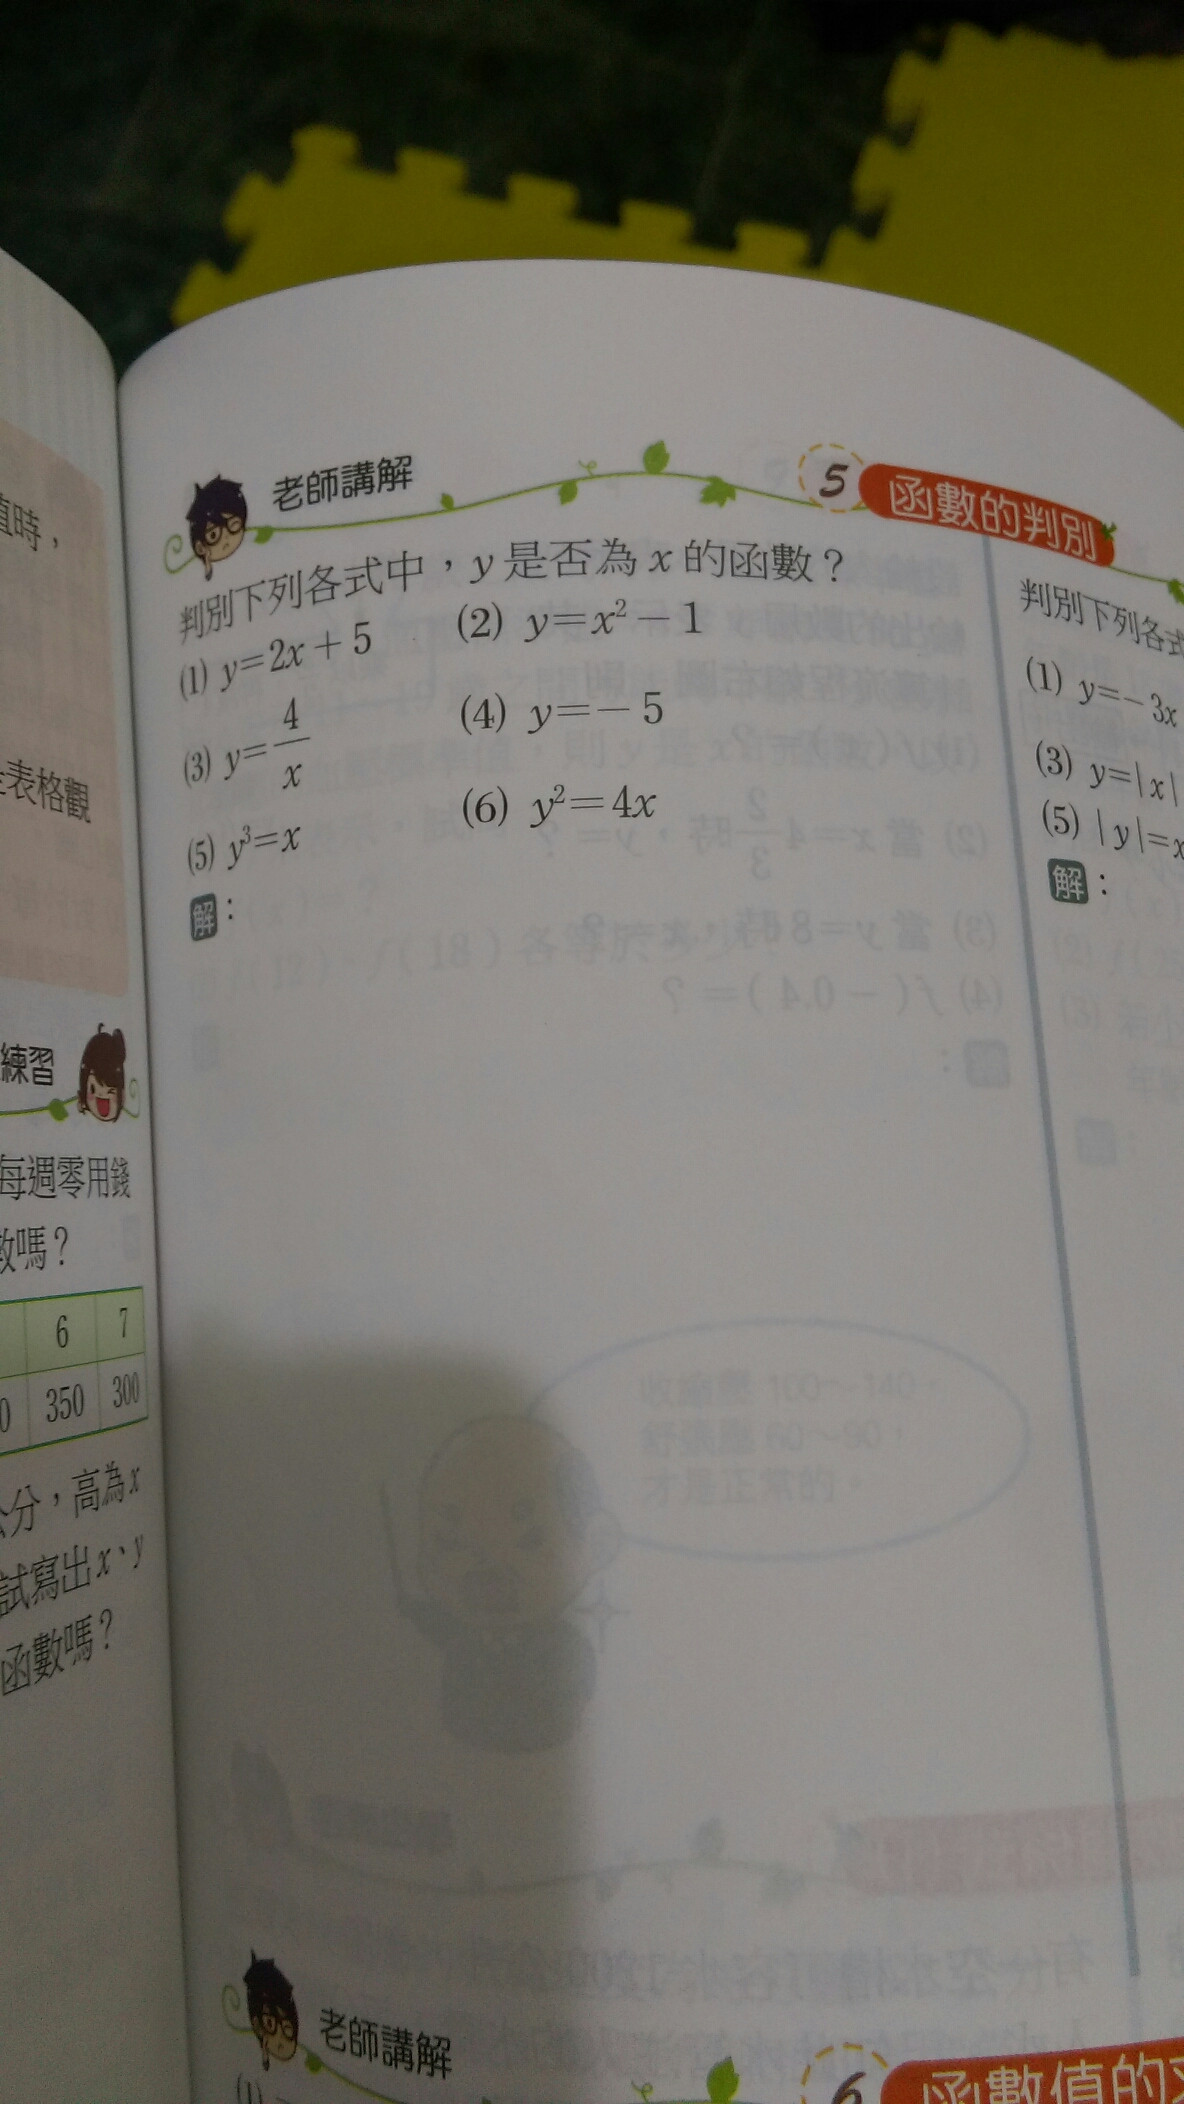 值時，
表格觀
練習
每週零用錢
數嗎？
6 7
0 350 300
公分，高為x
試寫出x、y
函數嗎？
老師講解
5 函數的判別
判別下列各式中，y是否為x的函數？
(1) y=2x+5 (2) y=x²-1
(3) y=4/x (4) y=-5
(5) y³=x (6) y²=4x
解：
判別下列各式
(1) y=-3x
(3) y=|x|
(5) |y|=x
解：
老師講解
6 函數值的
(1)